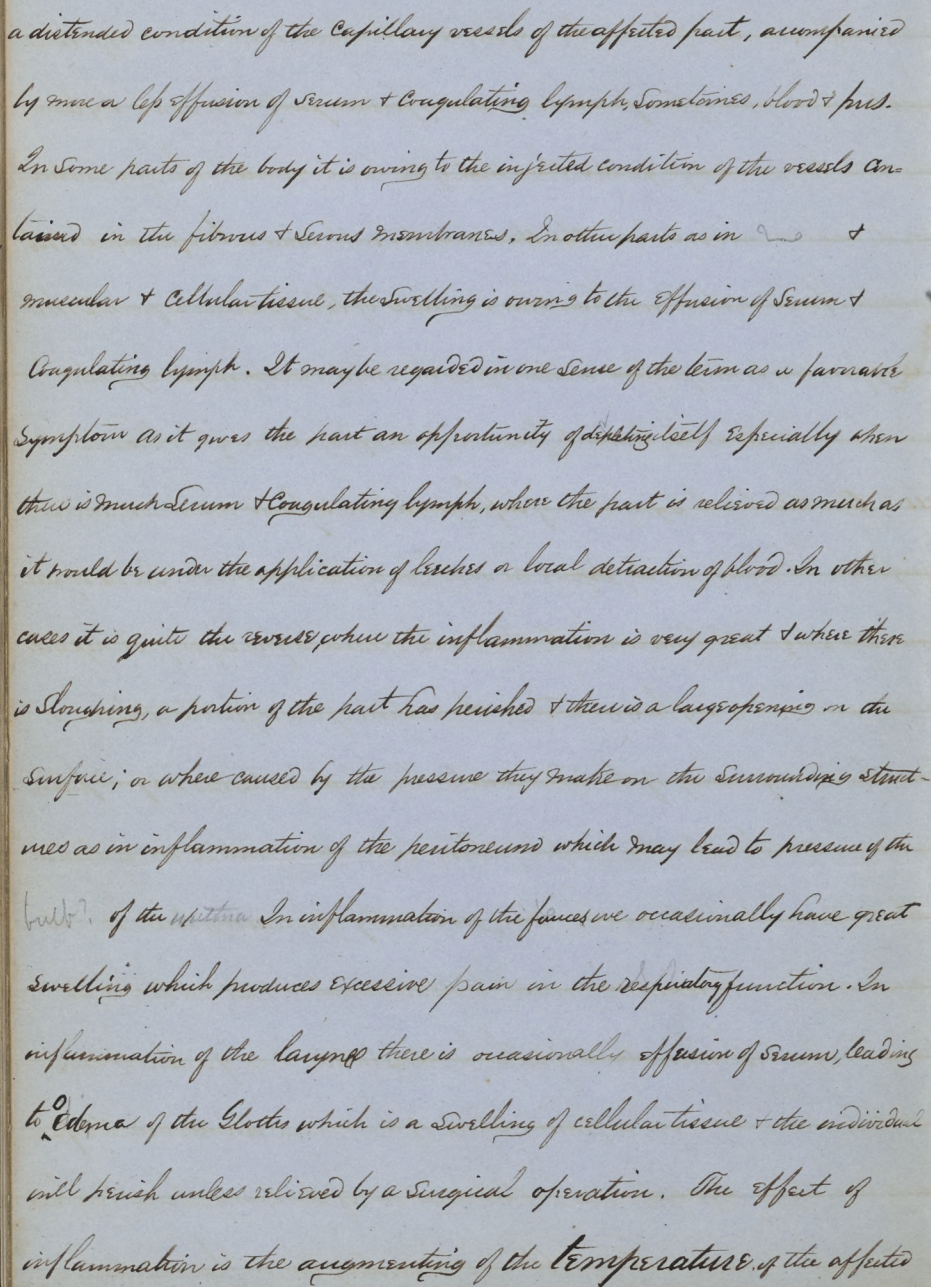 a distended condition of the Capillary vessels of the affected part, acompanied
by more a less effusion of Serum & Coagulating lymph, Sometimes, blood & pus.
In Some parts of the body it is owing to the injected condition of the vessels con=
tained in the fibrous & Serous Membranes. In other parts as in &
muscular & Cellular tissue, the Swelling is owing to the effusion of Serum &
Coagulating lymph. It may be regarded in one Sense of the term as a favorable
Symptom as it gives the part an opportunity of depleting itself Especially when
there is much Serum & Coagulating lymph, where the part is relieved as much as
it would be under the application of leeches or local detraction of blood. In other
cases it is quite the reverse, where the inflammation is very great & where there
is Sloughing, a portion of the part has perished & there is a large opening on the
Surface; or where caused by the pressure they make on the Surrounding struct-
ures as in inflammation of the peritoneund which may lead to pressure of the
bulb? of the urethra In inflammation of the fauces we occasionally have great
Swelling which produces Excessive pain in the respiratory function. In
inflammation of the larynx there is occasionally effusion of Serum, leading
to Oedema of the Glottis which is a Swelling of cellular tissue & the individual
will perish unless relieved by a Surgical operation. The effect of
inflammation is the augmenting of the temperature of the affected